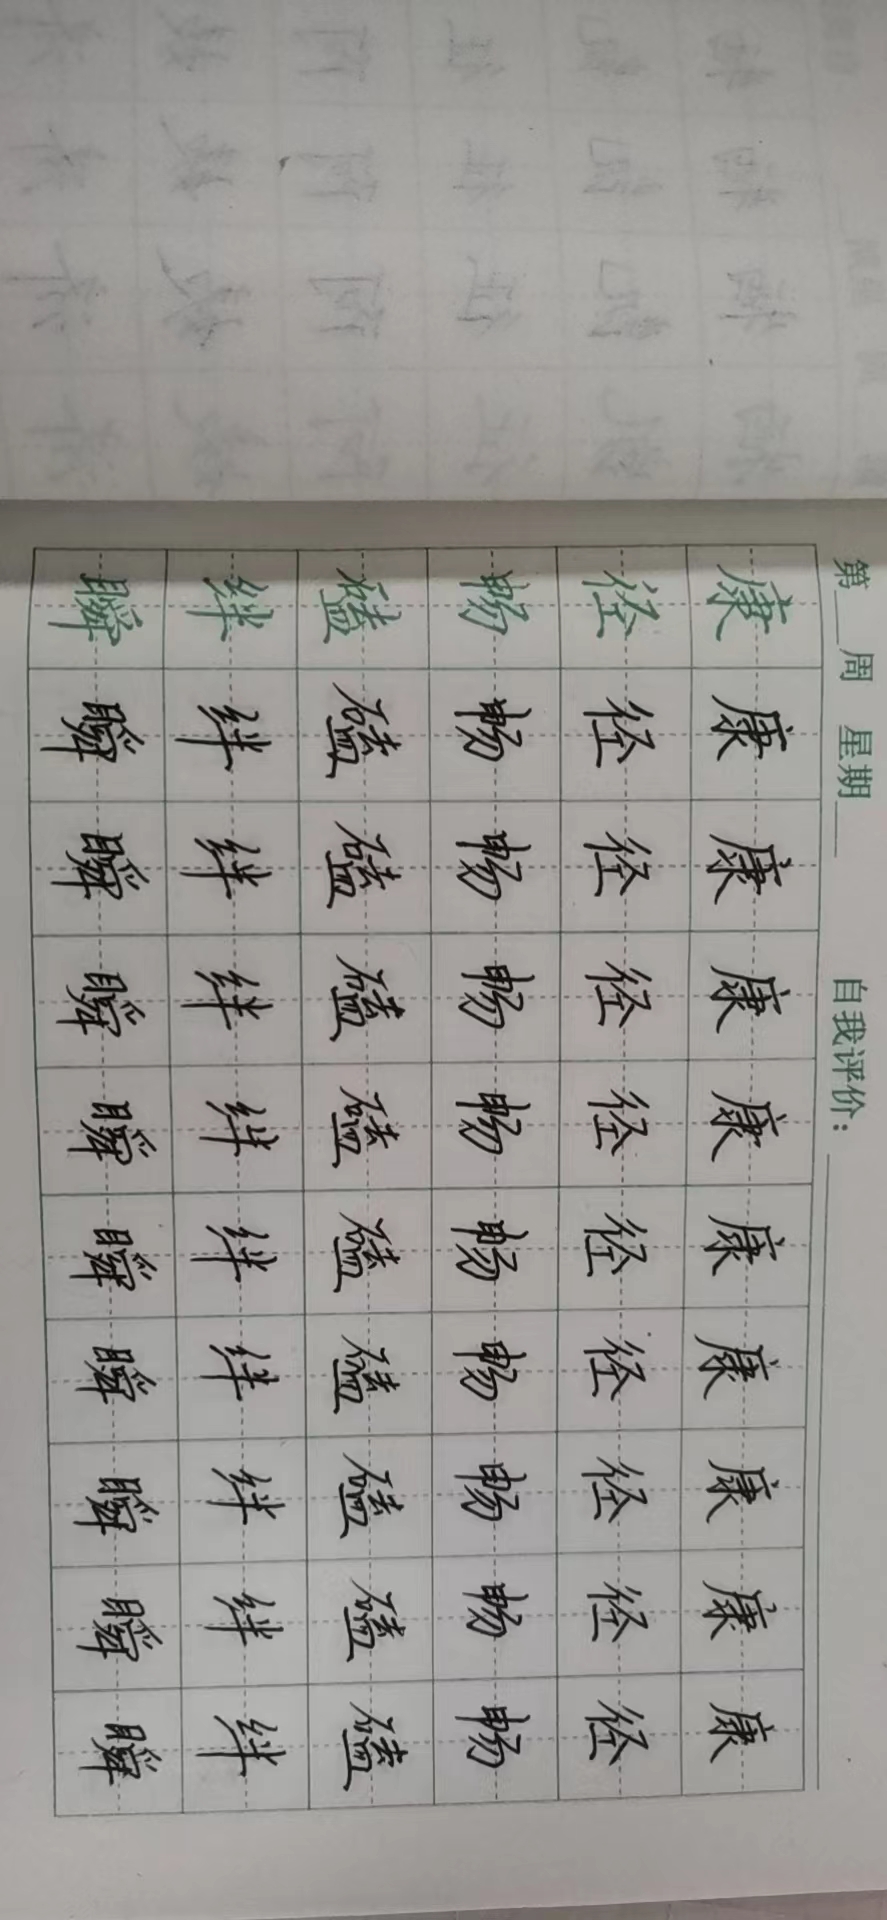 第__周 星期__ 自我评价：
康 康 康 康 康 康 康 康 康 康
径 径 径 径 径 径 径 径 径 径
畅 畅 畅 畅 畅 畅 畅 畅 畅 畅
磕 磕 磕 磕 磕 磕 磕 磕 磕 磕
绊 绊 绊 绊 绊 绊 绊 绊 绊 绊
瞬 瞬 瞬 瞬 瞬 瞬 瞬 瞬 瞬 瞬